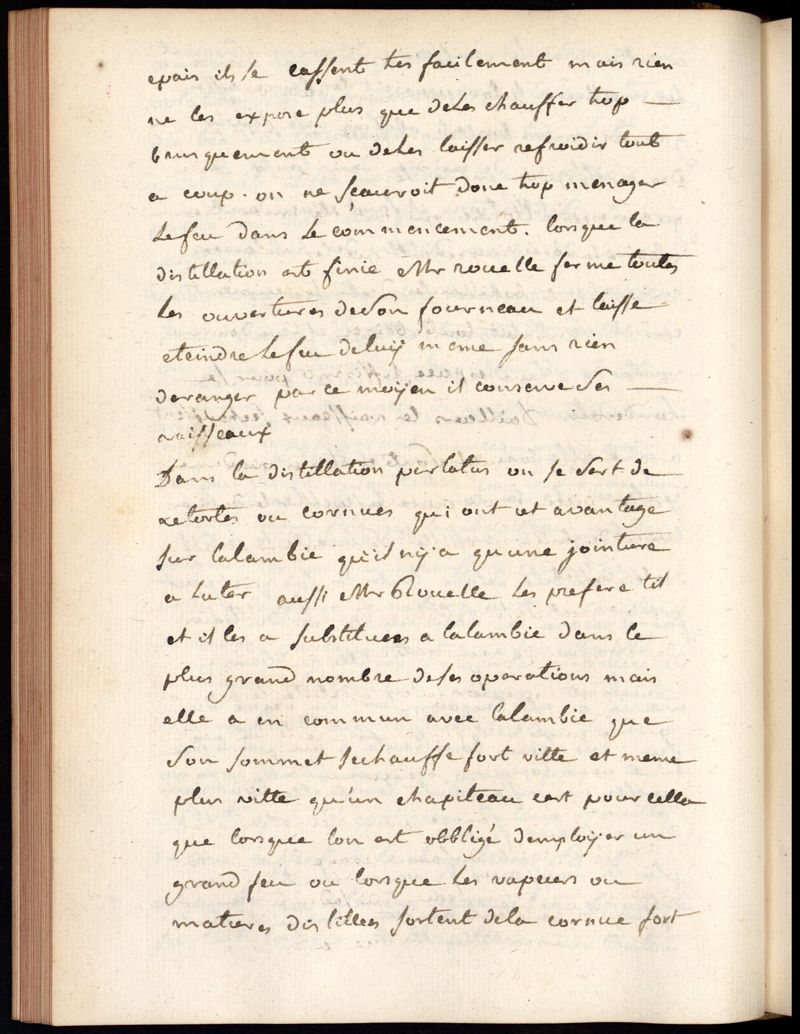 epais ils se cassent tes facilement mais rien
ne les expose plus que deles chauffer trop —
brusquement ou deles laisser refroidir tout
a coup. on ne sçauroit donc trop menager
lefeu dans le commencement. lorsque la
distillation est finie Mr rouelle ferme toutes
les ouvertures deson fourneau et laisse
eteindre lefeu deluy meme sans rien
deranger par ce moyen il conserve ses —
vaisseaux
Dans la distillation perlatus on se sert de
retortes ou cornues qui ont cet avantage
sur lalambic qu'il ny a qu'une jointure
a luter aussi Mr Rouelle les prefere til
et il les a substituees a lalambic dans le
plus grand nombre deses operations mais
elle a en commun avec lalambic que
son sommet sechauffe fort vitte et meme
plus vitte qu'un chapiteau cest pour cella
que lorsque lon est obbligé demployer un
grand feu ou lorsque les vapeurs ou
matieres distillees sortent dela cornue fort